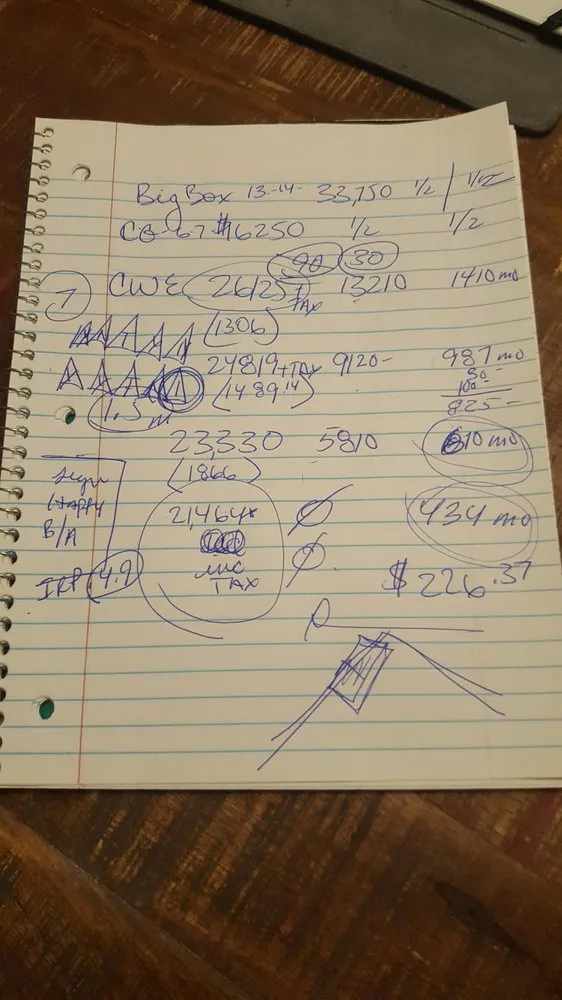 Big Box 13-14- 33,750 1/2 1/2
$16250 1/2 1/2
90 30
1 CWE 26125 + TAX 13210 1410 mo
(1306)
24819 + TAX 9120- 987 mo
(1489.14) 80-
100-
825-
1.5 m
23,330 5810 610 mo
(1866)
Happy
B/A
21,464* Ø 434 mo
INC Ø
TAX
4.9
$226.37